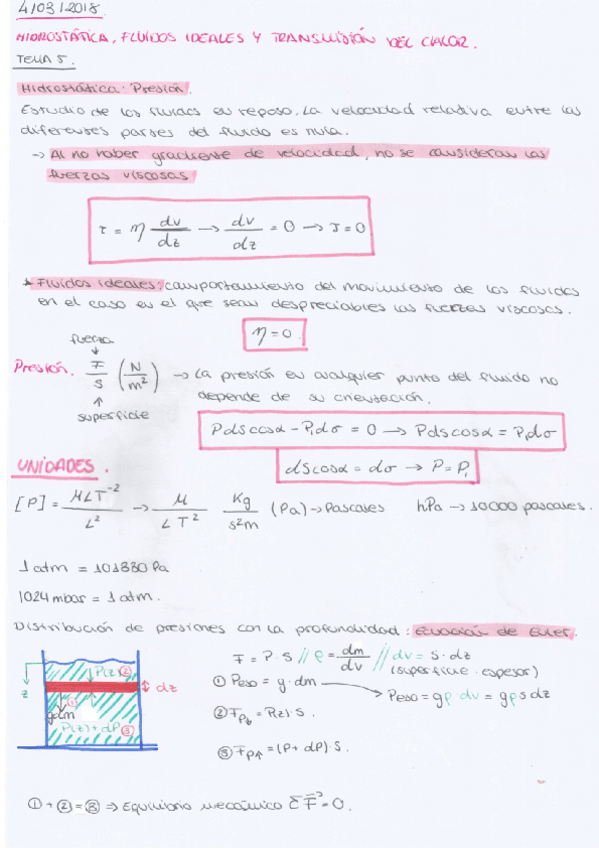 4/03/2018.
HIDROSTÁTICA, FLUIDOS IDEALES Y TRANSMISIÓN DEL CALOR.
TEMA 5.
Hidrostática: Presión.
Estudio de los fluidos en reposo. La velocidad relativa entre las
diferentes partes del fluido es nula.
→ Al no haber gradiente de velocidad, no se consideran las
fuerzas viscosas
τ = η dv/dz → dv/dz = 0 → τ = 0
* Fluidos ideales: comportamiento del movimiento de los fluidos
en el caso en el que sean despreciables las fuerzas viscosas.
η = 0.
fuerza
Presión. F/S (N/m²) → La presión en cualquier punto del fluido no
depende de su orientación.
superficie
Pdscosα - P₁dσ = 0 → Pdscosα = P₁dσ
dscosα = dσ → P = P₁
UNIDADES.
[P] = MLT⁻²/L² → M/LT² Kg/s²m (Pa) → Pascales hPa → 10000 pascales.
1 atm = 101330 Pa
1024 mbar = 1 atm.
Distribución de presiones con la profundidad: Ecuación de Euler.
F = P · S // ρ = dm/dv // dv = S · dz
(superficie · espesor)
① Peso = g · dm → Peso = gρ · dv = gρsdz
② Fp↓ = P(z) · S.
③ Fp↑ = (P + dP) · S.
z
P(z) ②
dz
①
gdm
P(z) + dP ③
① + ② = ③ ⇒ Equilibrio mecánico Σ F⃗ = 0.